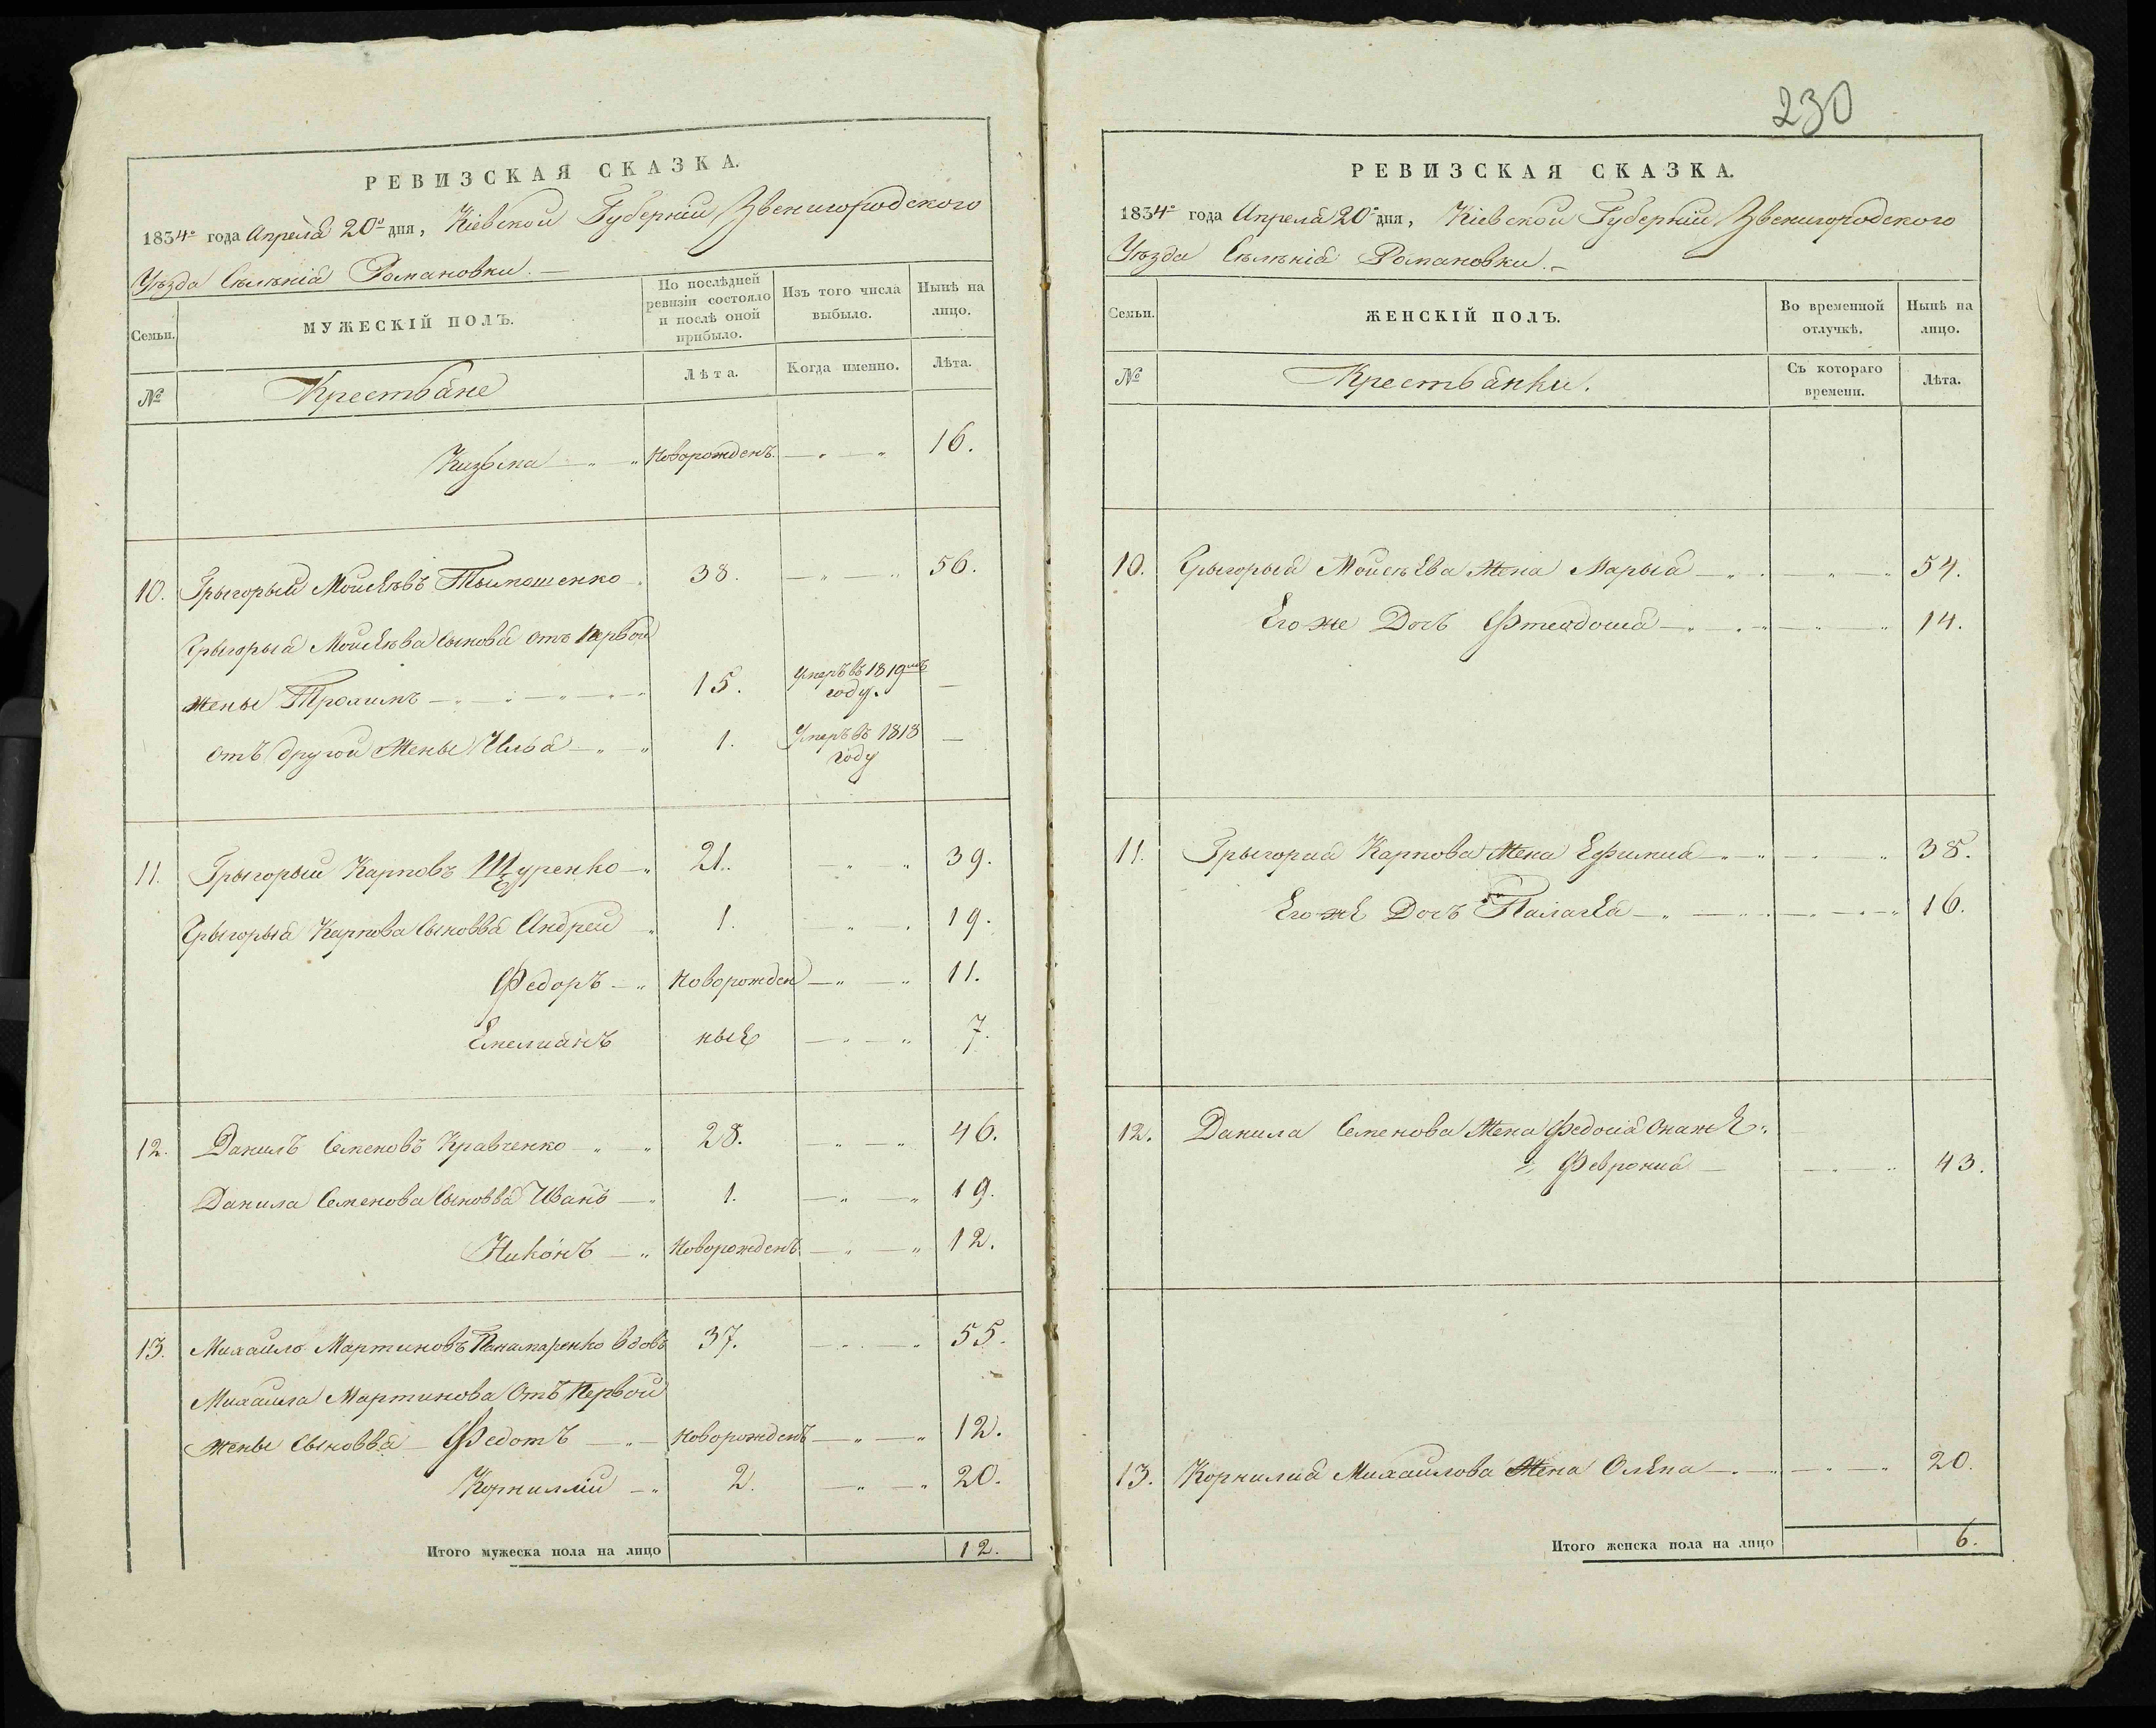 РЕВИЗСКАЯ СКАЗКА.
1834го года Апреля 20го дня, Кіевской Губерніи Звенигородского
Уезда Селенія Романовки.
Семьи.
МУЖЕСКІЙ ПОЛЪ.
По послѣдней ревизіи состояло и послѣ оной прибыло.
Изъ того числа выбыло.
Нынѣ на лицо.
№
Крестьяне
Лѣта.
Когда именно.
Лѣта.
Кизьма Новорожденъ. 16.
10. Грыгорый Мойсеевъ Тымошенко 38. 56.
Грыгорыя Мойсеева Сыновя отъ Первой
жены Трохимъ 15. Умеръ въ 1819мъ году. —
отъ другой Жены Илья 1. Умеръ въ 1818 году —
11. Грыгорый Карповъ Щуренко 21. 39.
Грыгорыя Карпова Сыновья Андрей 1. 19.
Федоръ Новорожден 11.
Емелианъ ные 7.
12. Данилъ Семеновъ Кравченко 28. 46.
Данила Семенова Сыновья Иванъ 1. 19.
Никонъ Новорожденъ 12.
13. Михайло Мартиновъ Панамаренко вдовъ 37. 55.
Михайла Мартинова Отъ Первой
жены Сыновья Федотъ Новорожденъ 12.
Корнилий 2. 20.
Итого мужеска пола на лицо 12.
230
РЕВИЗСКАЯ СКАЗКА.
1834го года Апреля 20го дня, Кіевской Губерніи Звенигородского
Уезда Селенія Романовки.
Семьи.
ЖЕНСКІЙ ПОЛЪ.
Во временной отлучкѣ.
Нынѣ на лицо.
№
Крестьянки.
Съ котораго времени.
Лѣта.
10. Грыгорыя Мойсеева Жена Марыя 54.
Его же Дочь Фтеодосия 14.
11. Грыгория Карпова Жена Ефимия 38.
Его же Дочь Палагея 16.
12. Данила Семенова Жена Федосія Она же
Феврония 43.
13. Корнилия Михайлова Жена Олена 20.
Итого женска пола на лицо 6.